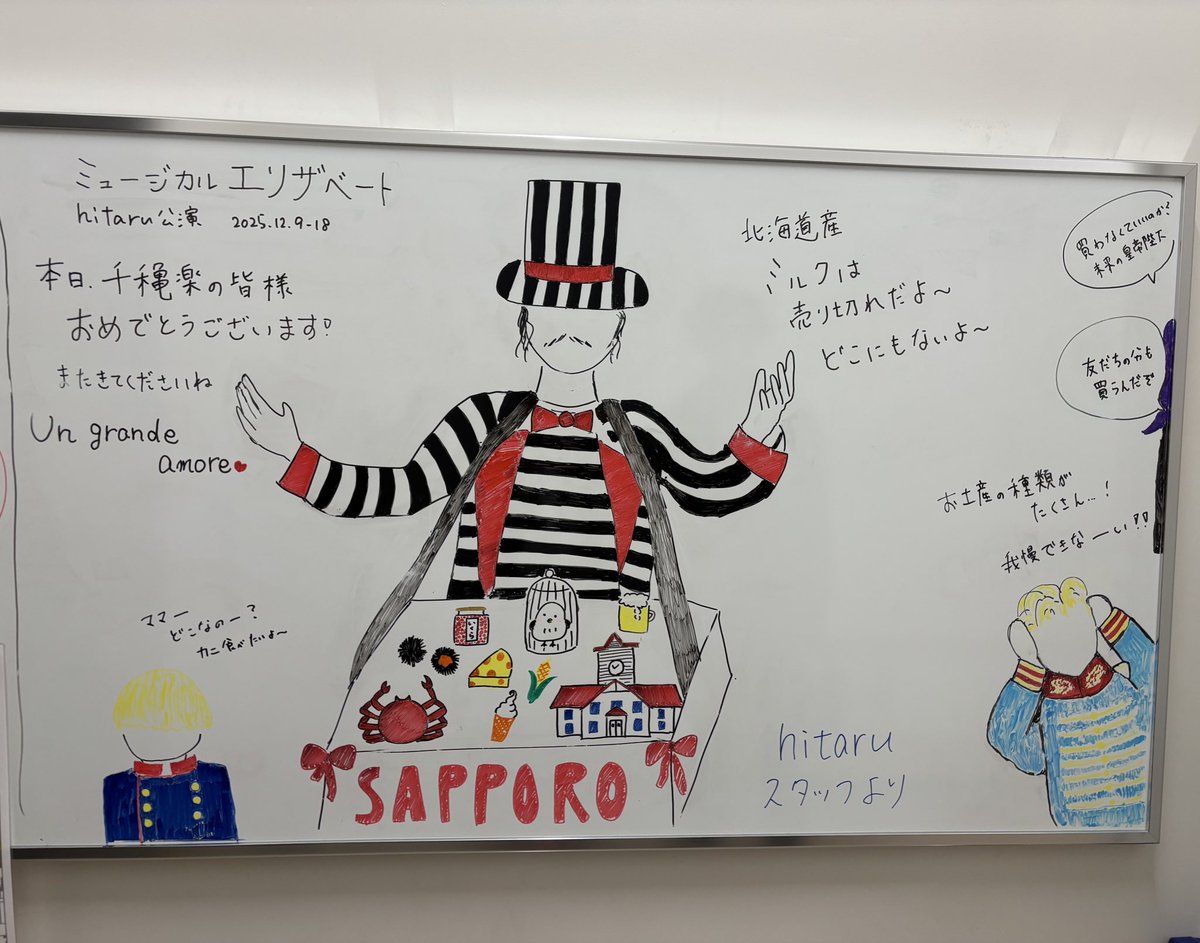 ミュージカル エリザベート
hitaru公演 2025.12.9-18
本日、千穐楽の皆様
おめでとうございます!
またきてくださいね
Un grande
amore
北海道産
ミルクは
売り切れだよ～
どこにもないよ～
買わなくていいのか?
未来の皇帝陛下
友だちの分も
買うんだぞ
お土産の種類が
たくさん…!
我慢できなーい!!
ママー
どこなのー?
カニ食べたいよ～
いくら
SAPPORO
hitaru
スタッフより